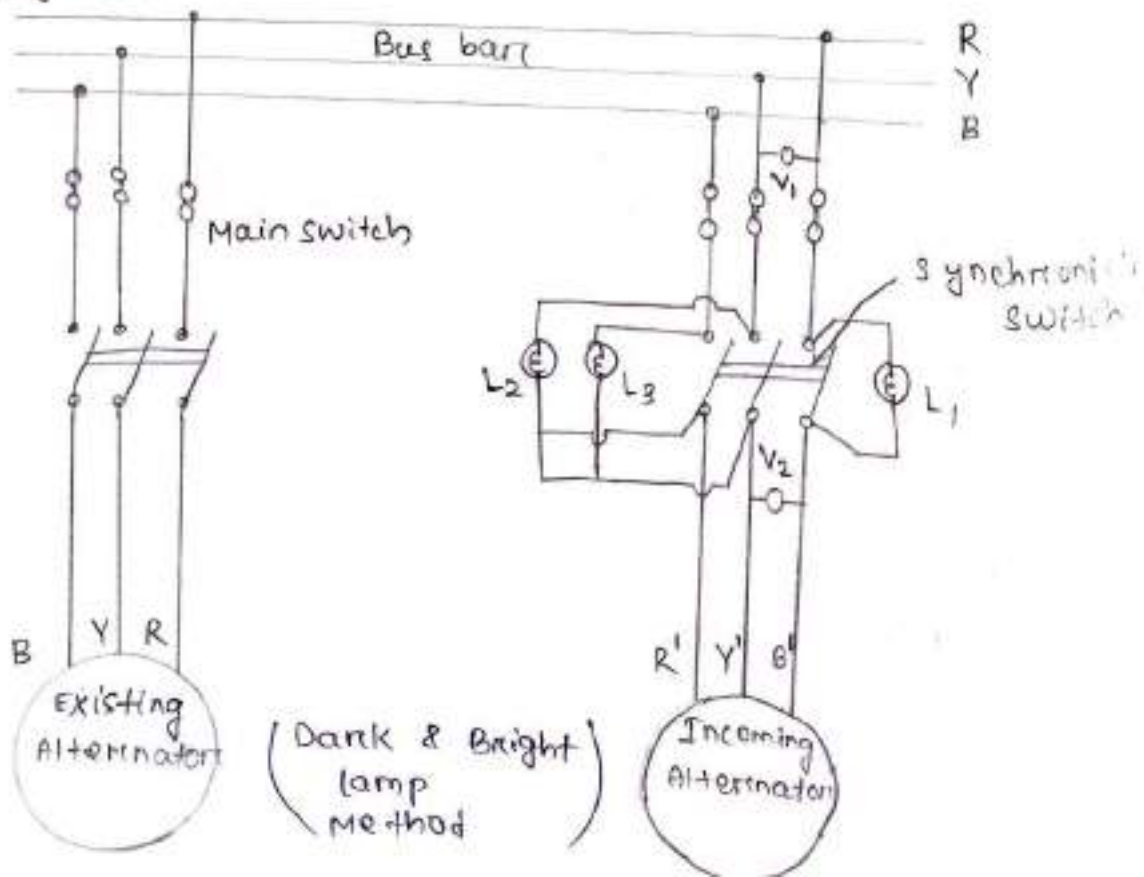 Bus bar
R
Y
B
V1
Main switch
switch
L2
L3
L1
V2
B Y R
R' Y' B'
Existing
Alternator
(Dark & Bright
lamp
Method)
Incoming
Alternator